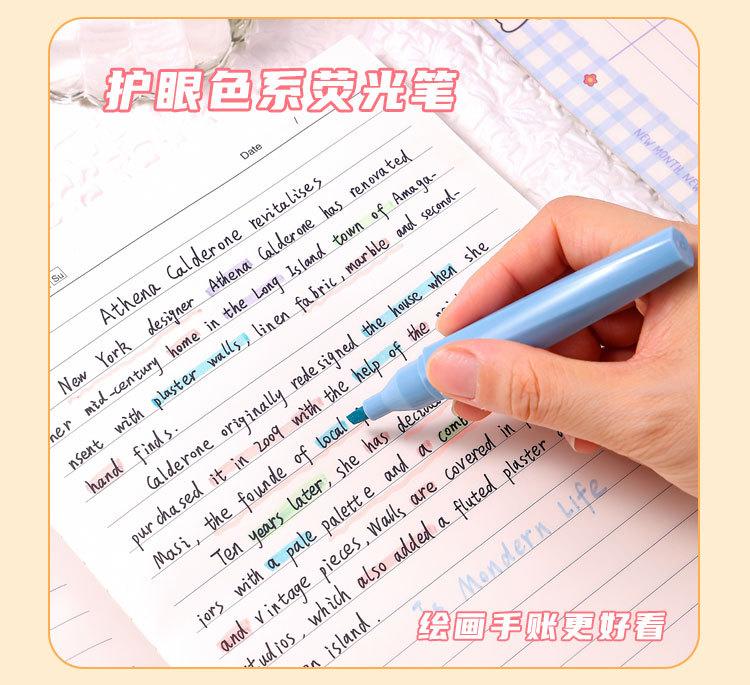 护眼色系荧光笔
Date
NEW MONTH, NEW
Su
Athena Calderone revitalises
New York designer Athena Calderone has renovated
her mid-century home in the Long Island town of Amaga-
nsent with plaster walls, linen fabric, marble and second-
hand finds.
Calderone originally redesigned the house when she
purchased it in 2009 with the help of the
Masi, the founde of local
Ten years later, she has
iors with a pale palette and a
and vintage pieces, Walls are covered in
studios, which also added a fluted plaster
island.
In Mondern Life
绘画手账更好看